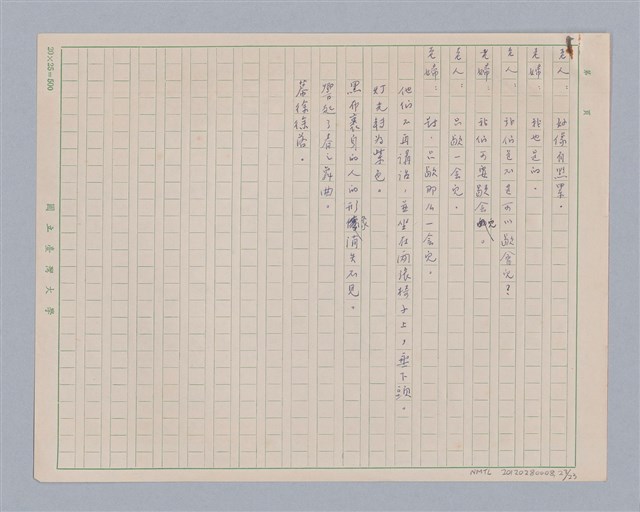 第 頁
老人： 好像有點累。
老婦： 我也是的。
老人： 我們是不是可以歇會兒？
老婦： 我們可要歇會兒。
老人： 只歇一會兒。
老婦： 對，只歇那么一會兒。
他們不再講話，並坐在兩張椅子上，垂下頭。
灯光轉為紫色。
黑布裹身的人的形像消失不見。
響起了春之舞曲。
幕徐徐落。
20×25=500
國立臺灣大學
NMTL 20120280008 23/23